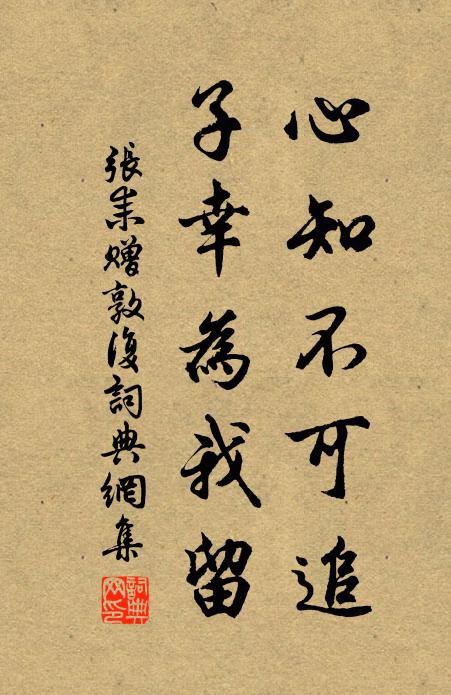 心知不可追
子幸為我留
張耒贈敦復詞典網集
詞典
网印